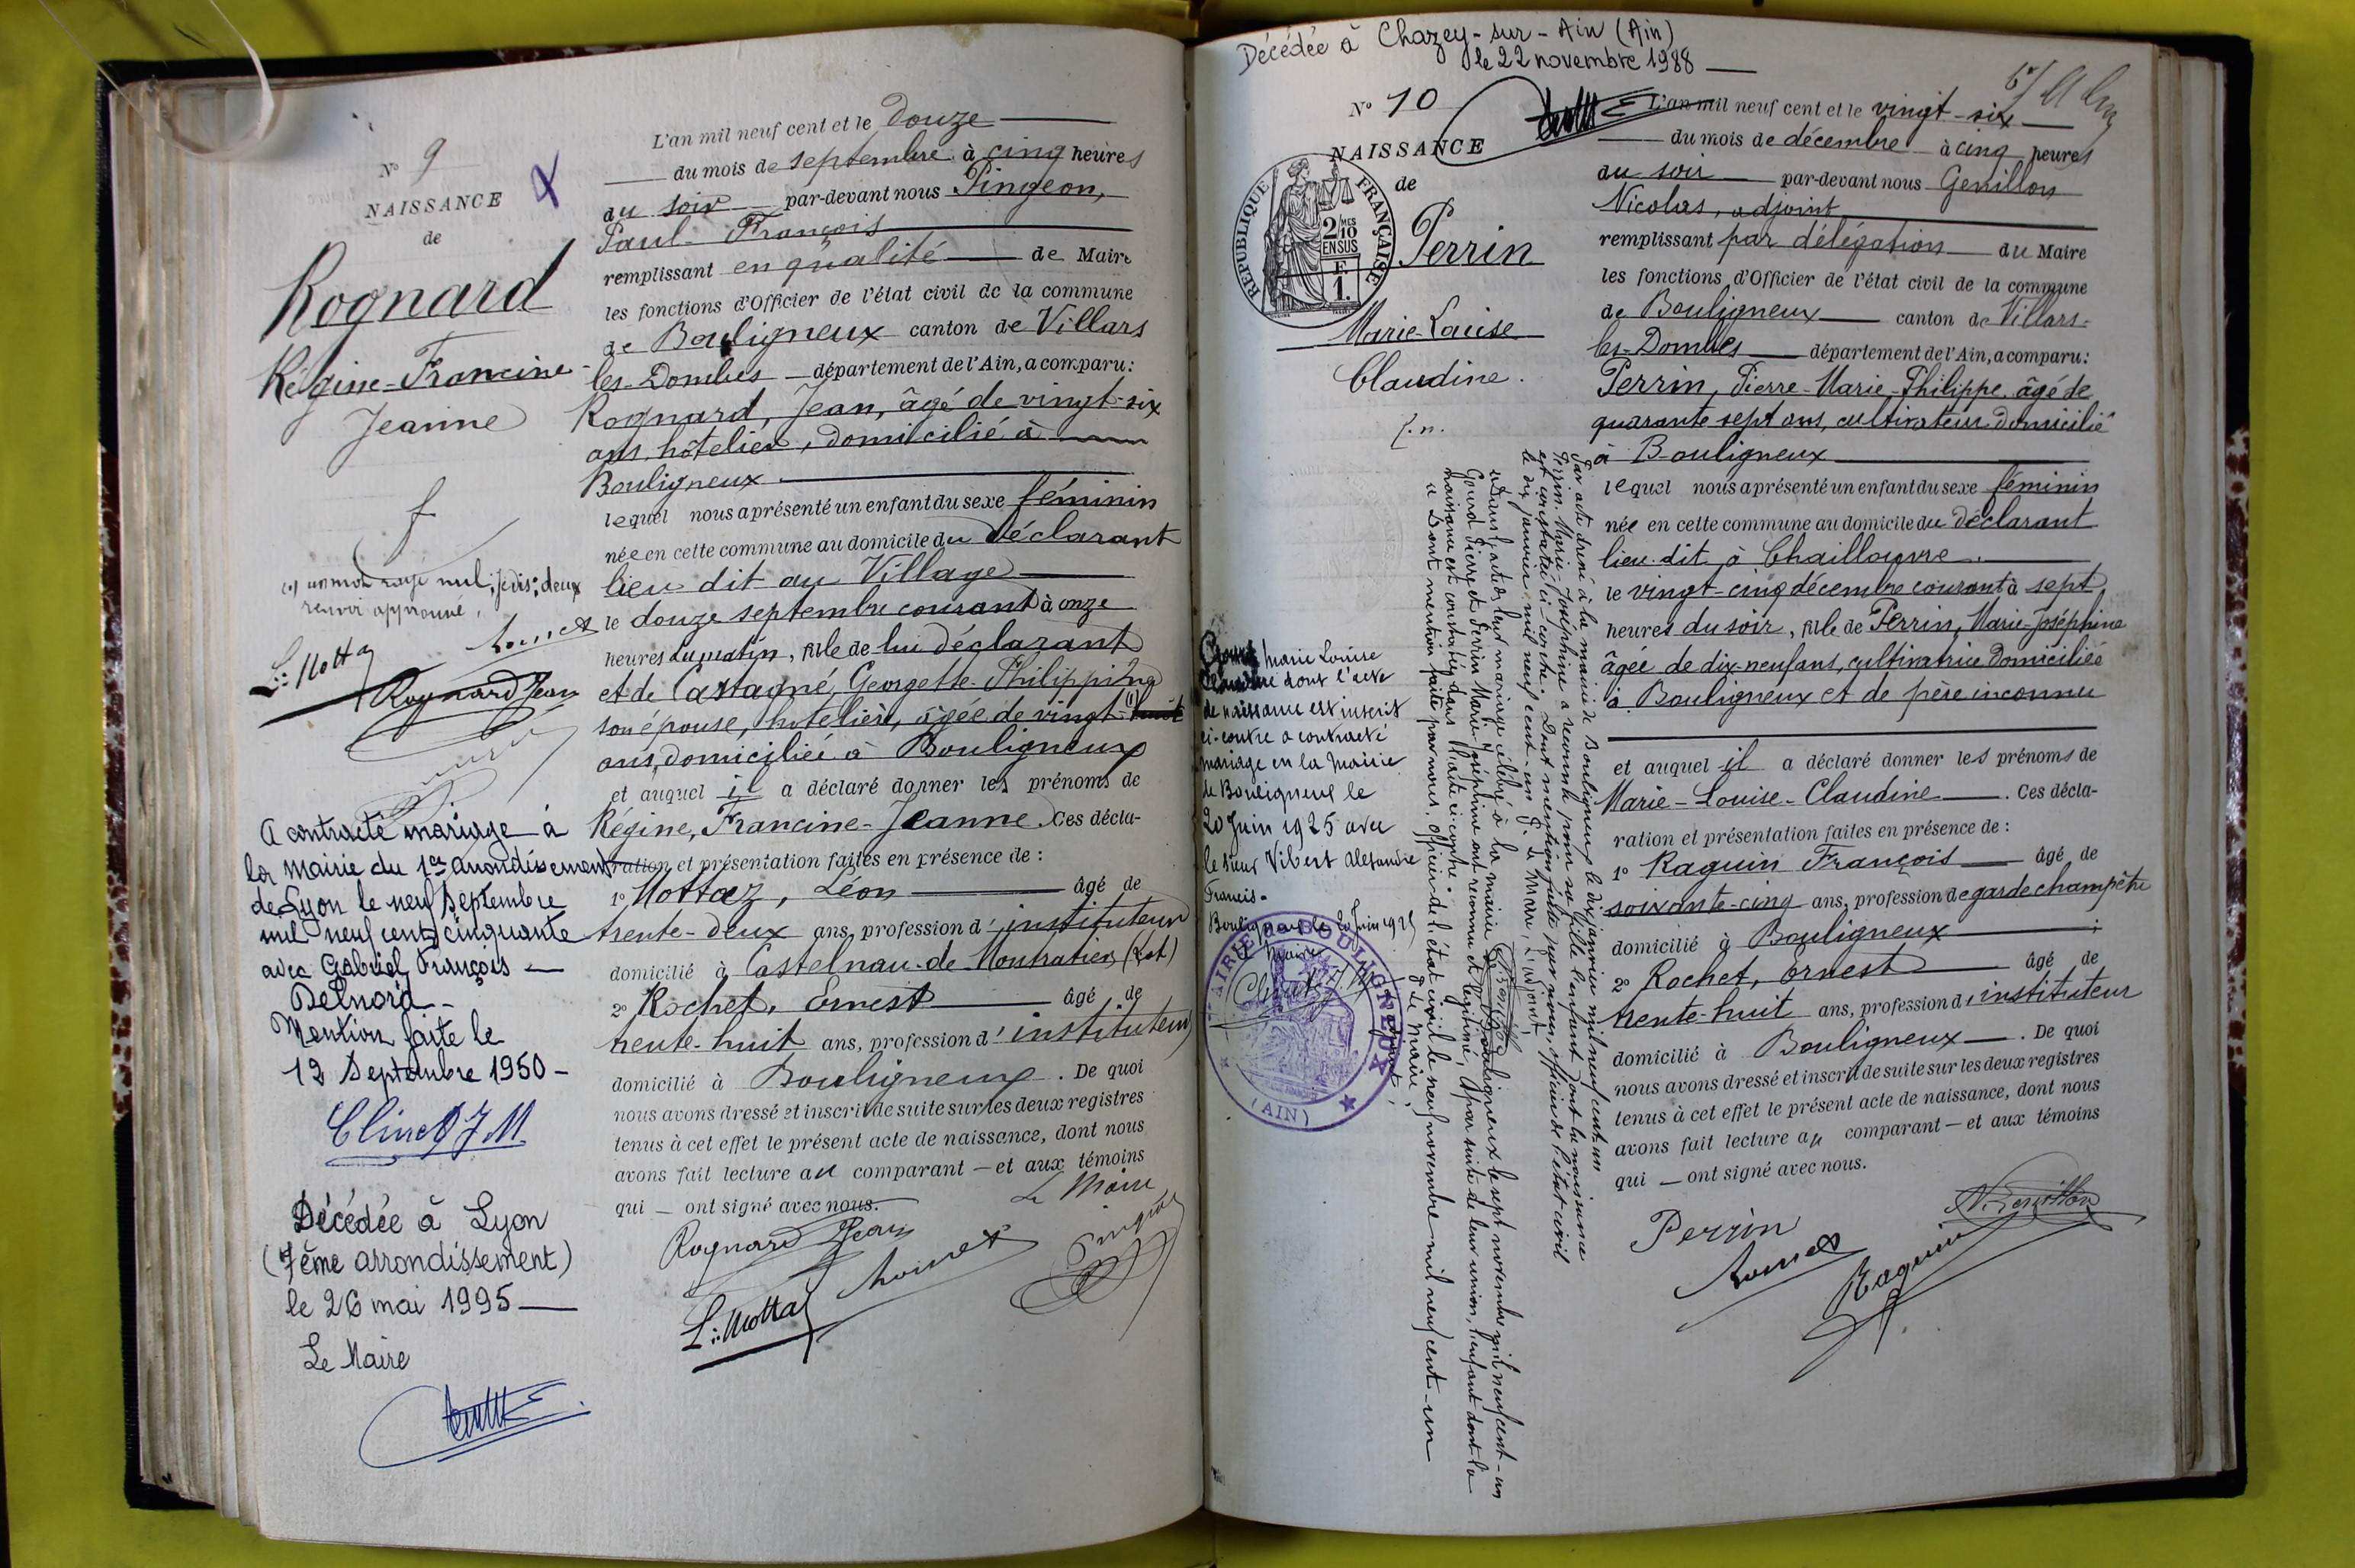 N° 9
NAISSANCE
de
Rognard
Régine-Francine
Jeanne
f
(1) un mot rayé nul, je dis: deux
renvoi approuvé,
L. Mottaz
Rognard Jean
A contracté mariage à
la Mairie du 1er arrondissement
de Lyon le neuf Septembre
mil neuf cent cinquante
avec Gabriel François —
Delnord —
Mention faite le
12 Septembre 1950 —
Clinet J M
Décédée à Lyon
(7ème arrondissement)
le 26 mai 1995 —
Le Maire
L'an mil neuf cent et le douze
du mois de septembre à cinq heures
du soir par-devant nous Pingeon,
Paul-François
remplissant en qualité de Maire
les fonctions d'Officier de l'état civil de la commune
de Bouligneux canton de Villars
les-Dombes département de l'Ain, a comparu:
Rognard, Jean, âgé de vingt-six
ans, hôtelier, domicilié à
Bouligneux
lequel nous a présenté un enfant du sexe féminin
née en cette commune au domicile du déclarant
lieu dit au Village
le douze septembre courant à onze
heures du matin, fille de lui déclarant
et de Castagné, Georgette-Philippina
son épouse, hotelière, âgée de vingt (1) huit
ans, domiciliée à Bouligneux
et auquel il a déclaré donner les prénoms de
Régine, Francine-Jeanne. Ces décla-
ration et présentation faites en présence de :
1° Mottaz, Léon âgé de
trente-deux ans, profession d'instituteur
domicilié à Castelnau-de Montratier (Lot)
2° Rochet, Ernest âgé de
trente-huit ans, profession d'instituteur
domicilié à Bouligneux. De quoi
nous avons dressé et inscrit de suite sur les deux registres
tenus à cet effet le présent acte de naissance, dont nous
avons fait lecture au comparant — et aux témoins
qui — ont signé avec nous.
Le Maire
Rognard Jean
L. Mottaz
Pingeon
Décédée à Chazey-sur-Ain (Ain)
le 22 novembre 1988 —
N° 10
NAISSANCE
de
RÉPUBLIQUE FRANÇAISE
2/10 MES
EN SUS
F.
1.
Perrin
Marie-Louise
Claudine.
f. n.
Marie Louise
Claudine dont l'acte
de naissance est inscrit
ci-contre a contracté
mariage en la Mairie
de Bouligneux le
20 Juin 1925 avec
le sieur Vibert Alexandre
Francis-
Bouligneux le 20 Juin 1925
Le Maire
MAIRIE DE BOULIGNEUX
(AIN)
Par acte dressé à la mairie de Bouligneux le dix janvier mil neuf cent un
Perrin Marie-Joséphine a reconnu pour sa fille l'enfant dont la naissance
est constatée ci-contre. Dont mention faite par nous, officier de l'état civil
le dix janvier mil neuf cent-un. P. Le Maire, L'adjoint,
Gourd Pierre et Perrin Marie-Joséphine ont reconnu et légitimé, par suite de leur union, l'enfant dont la
naissance est constatée dans l'acte ci-contre.
Dont mention faite par nous, officier de l'état civil le neuf novembre mil neuf cent-un
Le Maire,
L'an mil neuf cent et le vingt-six
du mois de décembre à cinq heures
du soir par-devant nous Genillon
Nicolas, adjoint
remplissant par délégation du Maire
les fonctions d'Officier de l'état civil de la commune
de Bouligneux canton de Villars-
les-Dombes département de l'Ain, a comparu:
Perrin, Pierre-Marie-Philippe, âgé de
quarante sept ans, cultivateur domicilié
à Bouligneux
lequel nous a présenté un enfant du sexe féminin
née en cette commune au domicile du déclarant
lieu dit à Chaillouvre.
le vingt-cinq décembre courant à sept
heures du soir, fille de Perrin, Marie-Joséphine
âgée de dix-neuf ans, cultivatrice domiciliée
à Bouligneux et de père inconnu
et auquel il a déclaré donner les prénoms de
Marie-Louise-Claudine. Ces décla-
ration et présentation faites en présence de :
1° Raguin François âgé de
soixante-cinq ans, profession de garde champêtre
domicilié à Bouligneux ;
2° Rochet, Ernest âgé de
trente-huit ans, profession d'instituteur
domicilié à Bouligneux. De quoi
nous avons dressé et inscrit de suite sur les deux registres
tenus à cet effet le présent acte de naissance, dont nous
avons fait lecture au comparant — et aux témoins
qui — ont signé avec nous.
N. Genillon
Perrin
Raguin